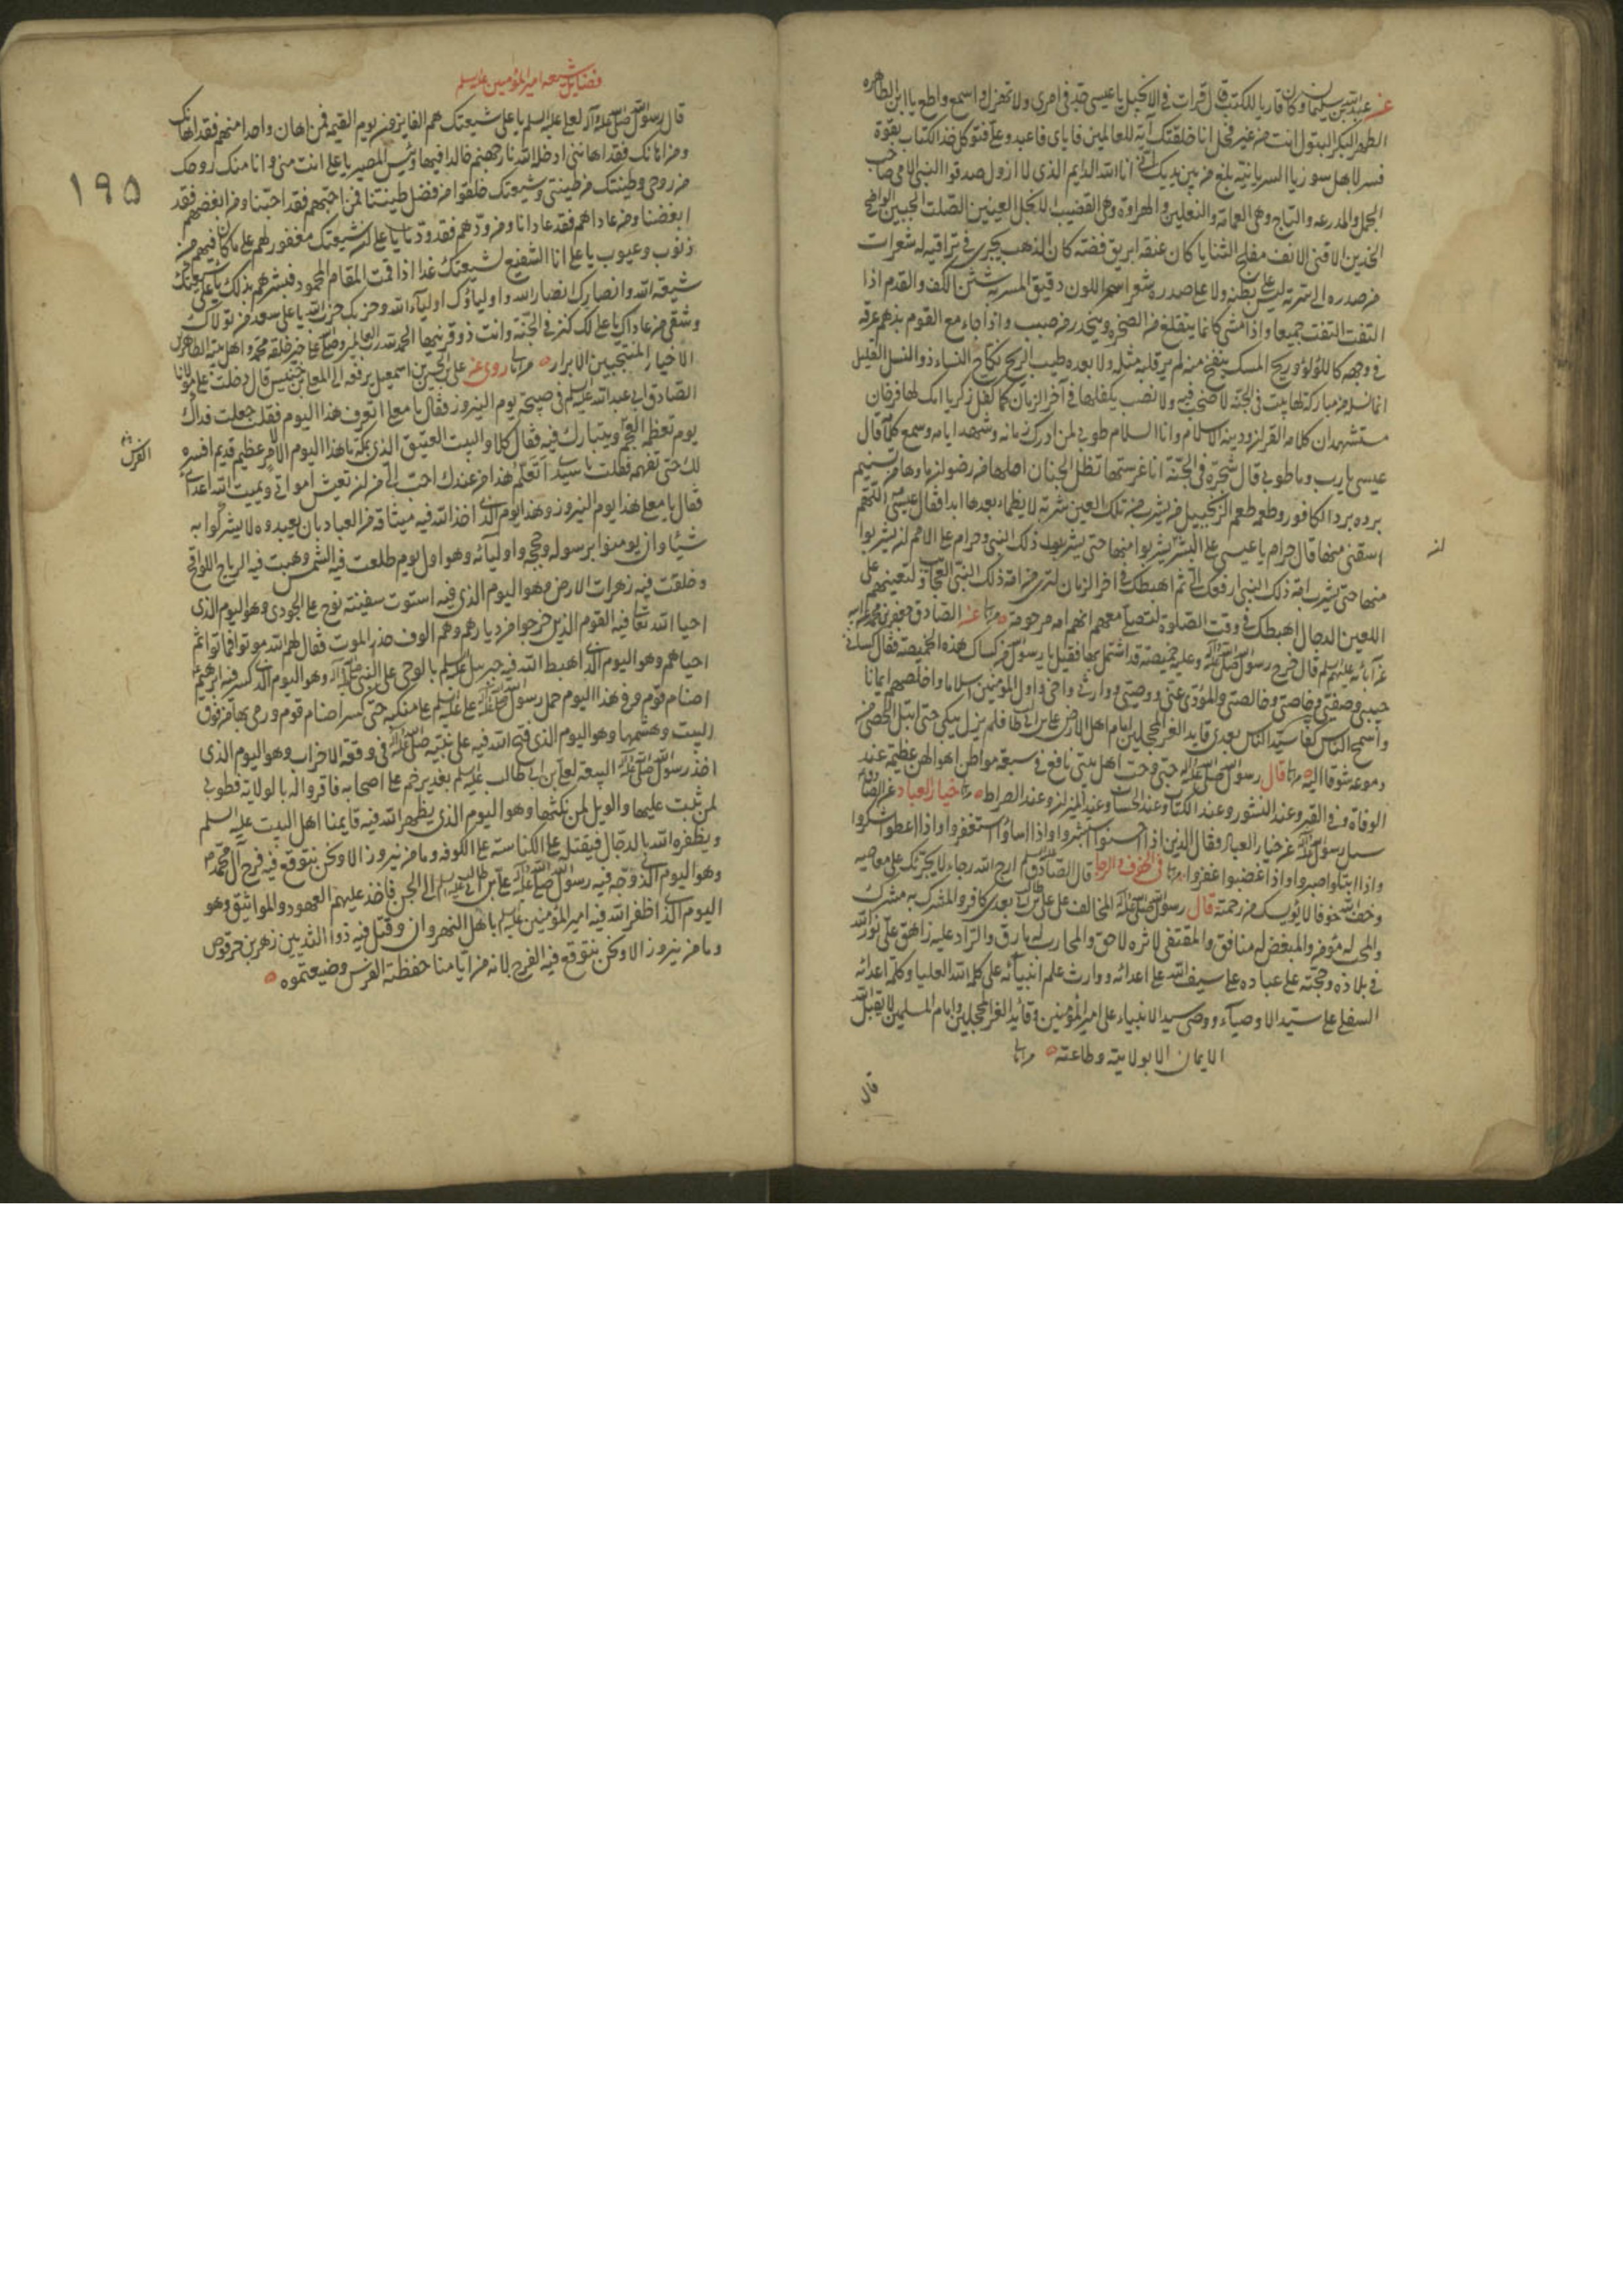 عن عبد الله بن سليمان وكان قاريا للكتب قال قرات في الانجيل يا عيسى جد في امري ولا تهزل واسمع واطع يا ابن الطاهره
الطهر البكر البتول انت من غير فحل انا خلقتك آية للعالمين فاياي فاعبد وعلي فتوكل خذ الكتاب بقوة
فسر لاهل سوريا السريانية بلغ من بين يديك اني انا الله الدايم الذي لا ازول صدقوا النبي الامي صاحب
الجمل والمدرعه والتاج وهي العمامة والنعلين والهراوة وهي القضيب الانجل العينين الصلت الجبين الواضح
الخدين الاقنى الانف مفلج الثنايا كان عنقه ابريق فضة كان الذهب يجري في تراقيه له شعرات
من صدره الى سرته ليس على بطنه ولا على صدره شعر اسمر اللون دقيق المسربة شثن الكف والقدم اذا
التفت التفت جميعا واذا مشى كانما يتقلع من الصخره وينحدر من صبب واذا جاء مع القوم بذهم عرقه
في وجهه كاللؤلؤ وريح المسك ينفح منه لم ير قبله مثله ولا بعده طيب الريح نكاح النساء ذو النسل القليل
انما نسله من مباركة لها بيت في الجنة لا صخب فيه ولا نصب يكفلها في آخر الزمان كما كفل زكريا امك لها فرخان
مستشهدان كلامه القران ودينه الاسلام وانا السلام طوبى لمن ادرك زمانه وشهد ايامه وسمع كلامه قال
عيسى يا رب وما طوبى قال شجرة في الجنة انا غرستها تظل الجنان اصلها من رضوان ماؤها من تسنيم
برده برد الكافور وطعمه طعم الزنجبيل من يشرب من تلك العين شربة لا يظماء بعدها ابدا فقال عيسى اللهم
اسقني منها قال حرام يا عيسى على البشر يشربوا منها حتى يشرب ذلك النبي وحرام على الامم ان يشربوا
لن
منها حتى يشرب امة ذلك النبي ارفعك الي ثم اهبطك في اخر الزمان لترى من امة ذلك النبي العجايب ولتعينهم على
اللعين الدجال اهبطك في وقت الصلوة لتصلي معهم انهم امة مرحومة عن الصادق جعفر بن محمد عن ابيه
عن آبائه عليهم السلم قال خرج رسول الله صلى الله عليه وآله وعليه خميصة قد اشتمل بها فقيل يا رسول الله من كساك هذه الخميصة فقال كساني
حبيبي وصفيي وخاصتي وخالصتي والمؤدي عني ووصيي ووارثي واخي واول المؤمنين اسلاما واخلصهم ايمانا
واسمح الناس كفا سيد الناس بعدي قايد الغر المحجلين امام اهل الارض علي بن ابي طالب فلم يزل يبكي حتى ابتل الحصى من
دموعه شوقا اليه قال رسول الله صلى الله عليه وآله حبي وحب اهل بيتي نافع في سبعة مواطن اهوالهن عظيمة عند
الوفاة وفي القبر وعند النشور وعند الكتاب وعند الحساب وعند الميزان وعند الصراط خيار العباد عن الصادق
سئل رسول الله صلى الله عليه وآله عن خيار العباد فقال الذين اذا احسنوا استبشروا واذا اساؤا استغفروا واذا اعطوا شكروا
واذا ابتلوا صبروا واذا غضبوا غفروا في الخوف والرجا قال الصادق عليه السلم ارج الله رجاء لا يجزئك على معاصيه
وخف الله خوفا لا يؤيسك من رحمته قال رسول الله صلى الله عليه وآله المخالف على علي بن ابي طالب بعدي كافر والمشرك به مشرك
والمحب له مؤمن والمبغض له منافق والمقتفي لاثره لاحق والمحارب له مارق والراد عليه زاهق علي نور الله
في بلاده وحجته على عباده علي سيف الله على اعدائه ووارث علم انبيائه علي كلمة الله العليا وكلمة اعدائه
السفلى علي سيد الاوصياء ووصي سيد الانبياء علي امير المؤمنين وقائد الغر المحجلين وامام المسلمين لا يقبل الله
الايمان الا بولايته وطاعته
قال
فضايل شيعه امير المؤمنين عليه السلم
١٩٥
قال رسول الله صلى الله عليه وآله لعلي عليه السلم يا علي شيعتك هم الفايزون يوم القيمه فمن اهان واحدا منهم فقد اهانك
ومن اهانك فقد اهانني ادخله الله نار جهنم خالدا فيها وبئس المصير يا علي انت مني وانا منك روحك
من روحي وطينتك من طينتي وشيعتك خلقوا من فضل طينتنا فمن احبهم فقد احبنا ومن ابغضهم فقد
ابغضنا ومن عاداهم فقد عادانا ومن ودهم فقد ودنا يا علي ان شيعتك مغفور لهم على ما كان فيهم من
ذنوب وعيوب يا علي انا الشفيع لشيعتك غدا اذا قمت المقام المحمود فبشرهم بذلك يا علي شيعتك
شيعة الله وانصارك انصار الله واولياؤك اولياء الله وحزبك حزب الله يا علي سعد من تولاك
وشقي من عاداك يا علي لك كنز في الجنة وانت ذو قرنيها الحمد لله رب العالمين وصلى الله على خير خلقه محمد واهل بيته الطاهرين
الاخيار المنتجبين الابرار روي عن علي بن الحسين بن اسمعيل يرفعه الى المعلى بن خنيس قال دخلت على مولانا
الصادق ابي عبد الله عليه السلم في صبيحة يوم النيروز فقال يا معلى اتعرف هذا اليوم فقلت جعلت فداك
يوم تعظمه العجم ويتبارك فيه فقال كلا والبيت العتيق الذي بمكة ما هذا اليوم الا لامر عظيم قديم افسره
الفرس
لك حتى تفهمه فقلت يا سيدي تعلم هذا من عندك احب الي من ان تعيش امواتي ويميت الله اعدائي
فقال يا معلى هذا يوم النيروز وهذا يوم الذي اخذ الله فيه ميثاقه من العباد بان يعبدوه لا يشركوا به
شيئا وان يومنوا برسوله وحججه واوليائه وهو اول يوم طلعت فيه الشمس وهبت فيه الرياح اللواقح
وخلقت فيه زهرات الارض وهو اليوم الذي فيه استوت سفينة نوح على الجودي وهو اليوم الذي
احيا الله تعالى فيه القوم الذين خرجوا من ديارهم وهم الوف حذر الموت فقال لهم الله موتوا فماتوا ثم
احياهم وهو اليوم الذي اهبط الله فيه جبرئيل عليه السلم بالوحي على النبي صلى الله عليه وآله وهو اليوم الذي كسر فيه ابرهيم
اصنام قومه وفي هذا اليوم حمل رسول الله صلى الله عليه وآله علي عليه السلم على منكبه حتى كسر اصنام قومه ورمى بها من فوق
البيت وهشمها وهو اليوم الذي فتح الله فيه على نبيه صلى الله عليه وآله في وقعة الاحزاب وهو اليوم الذي
اخذ رسول الله صلى الله عليه وآله البيعة لعلي بن ابي طالب عليه السلم بغدير خم على اصحابه فاقروا له بالولاية فطوبى
لمن ثبت عليها والويل لمن نكثها وهو اليوم الذي يظهر الله فيه قايمنا اهل البيت عليه السلم
ويظفره الله بالدجال فيقتله على الكناسة على الكوفه وما من نيروز الا ونحن نتوقع فيه فرج آل محمد
وهو اليوم الذي وجه فيه رسول الله صلى الله عليه وآله علي بن ابي طالب عليه السلم الى الجن فاخذ عليهم العهود والمواثيق وهو
اليوم الذي اظفر الله فيه امير المؤمنين عليه السلم باهل النهروان وقتل فيه ذو الثديين زهير بن حرقوص
وما من نيروز الا ونحن نتوقع فيه الفرج لانه من ايامنا حفظته الفرس وضيعتموه